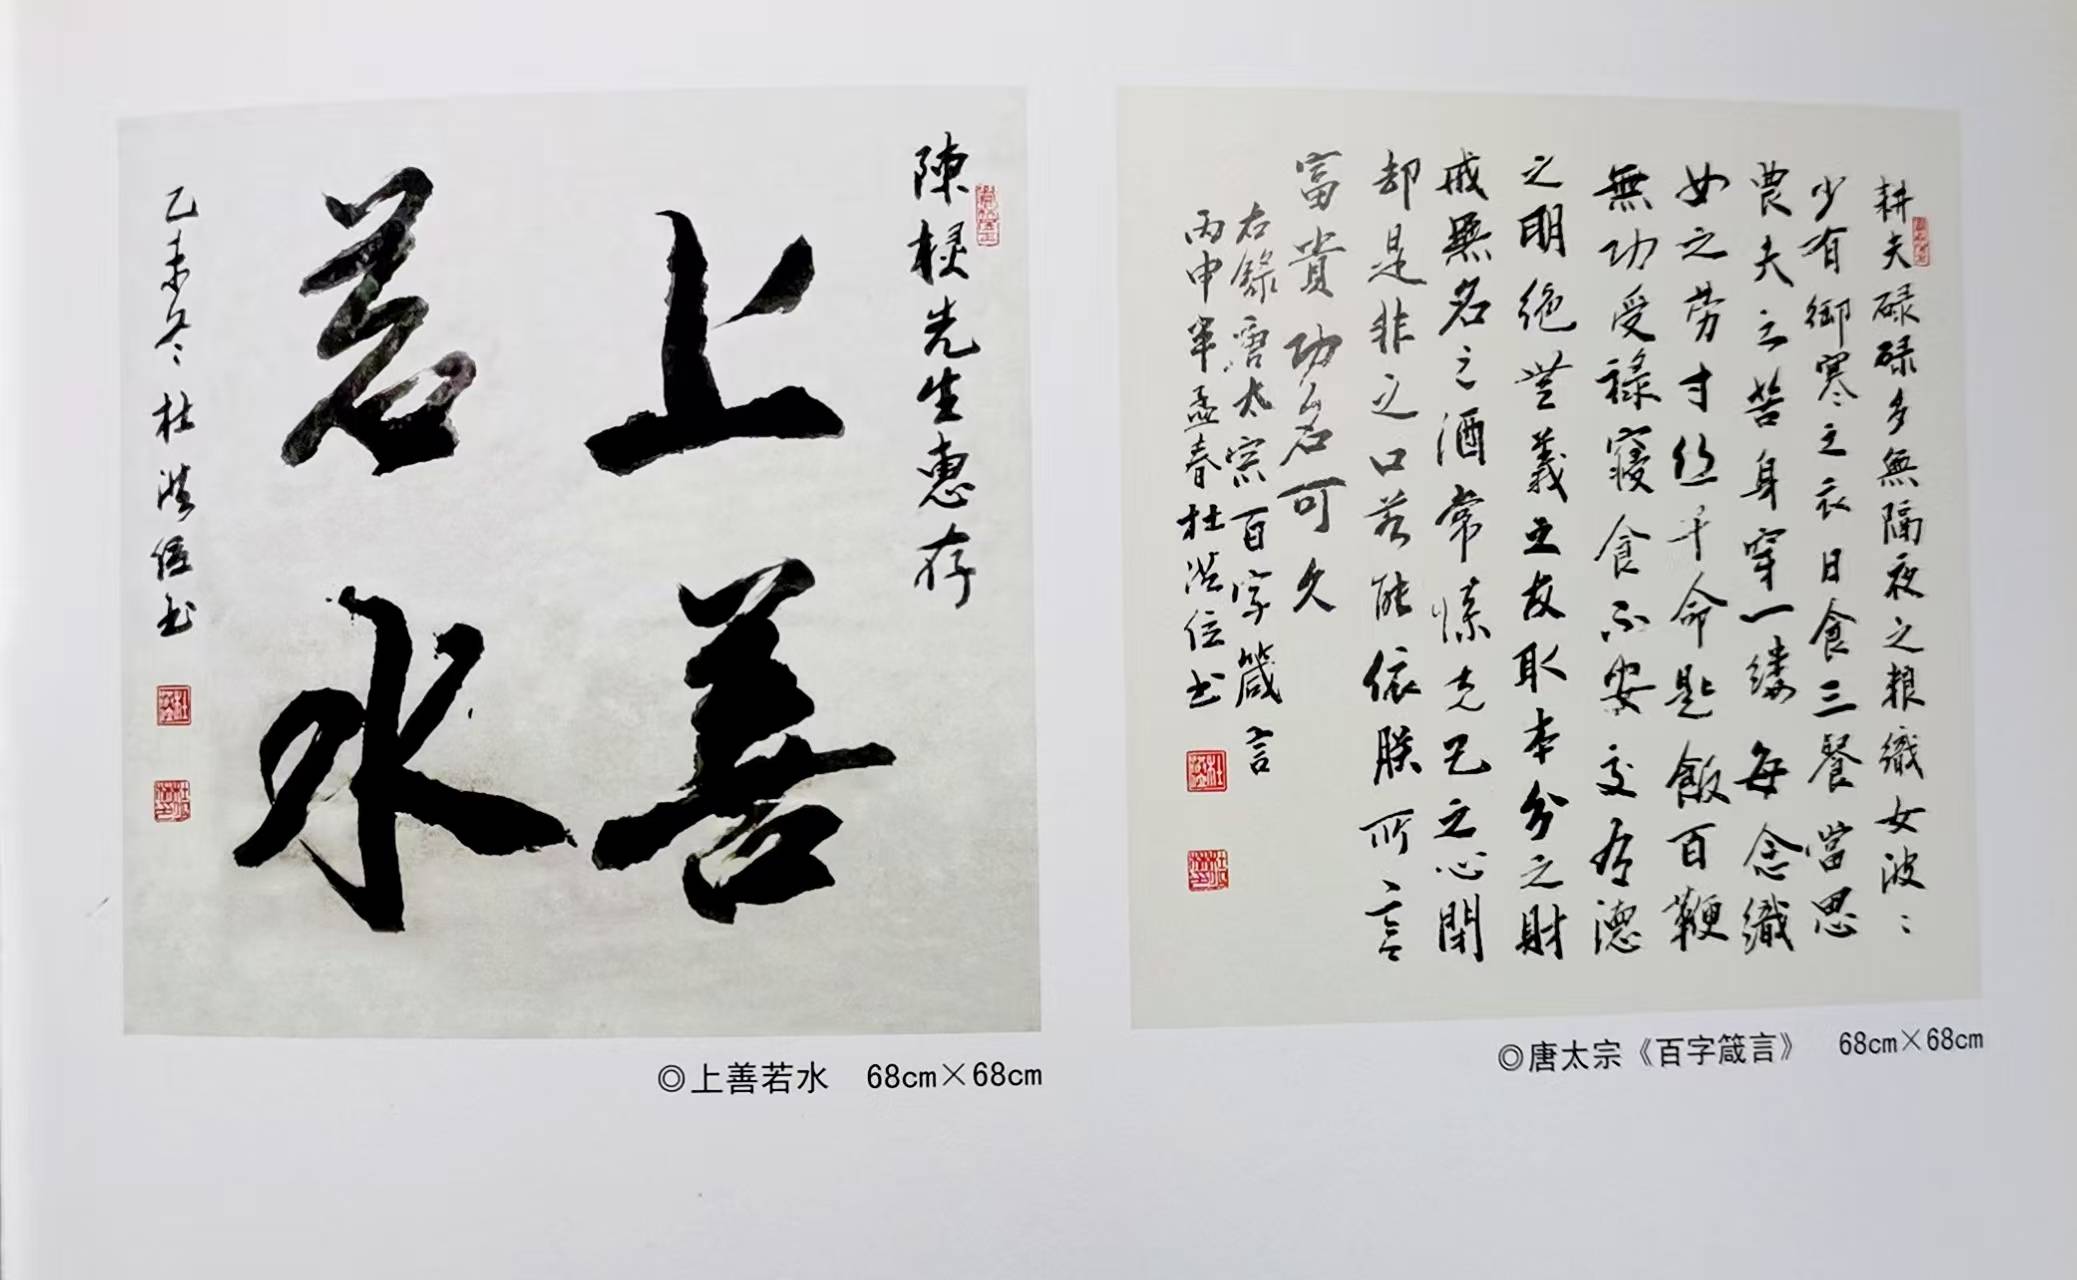 陳 先生惠存
上善
若水
乙未冬杜洪位书
◎上善若水 68cm×68cm
耕夫碌碌多無隔夜之粮織女波〻
少有御寒之衣日食三餐當思
農夫之苦身穿一缕每念織
女之劳寸丝千命匙飯百鞭
無功受禄寝食不安交有德
之朋绝無義之友取本分之財
戒無名之酒常懷克己之心閉
却是非之口若能依朕所言
富貴功名可久
右錄唐太宗百字箴言
丙申年孟春杜洪位书
◎唐太宗《百字箴言》 68cm×68cm